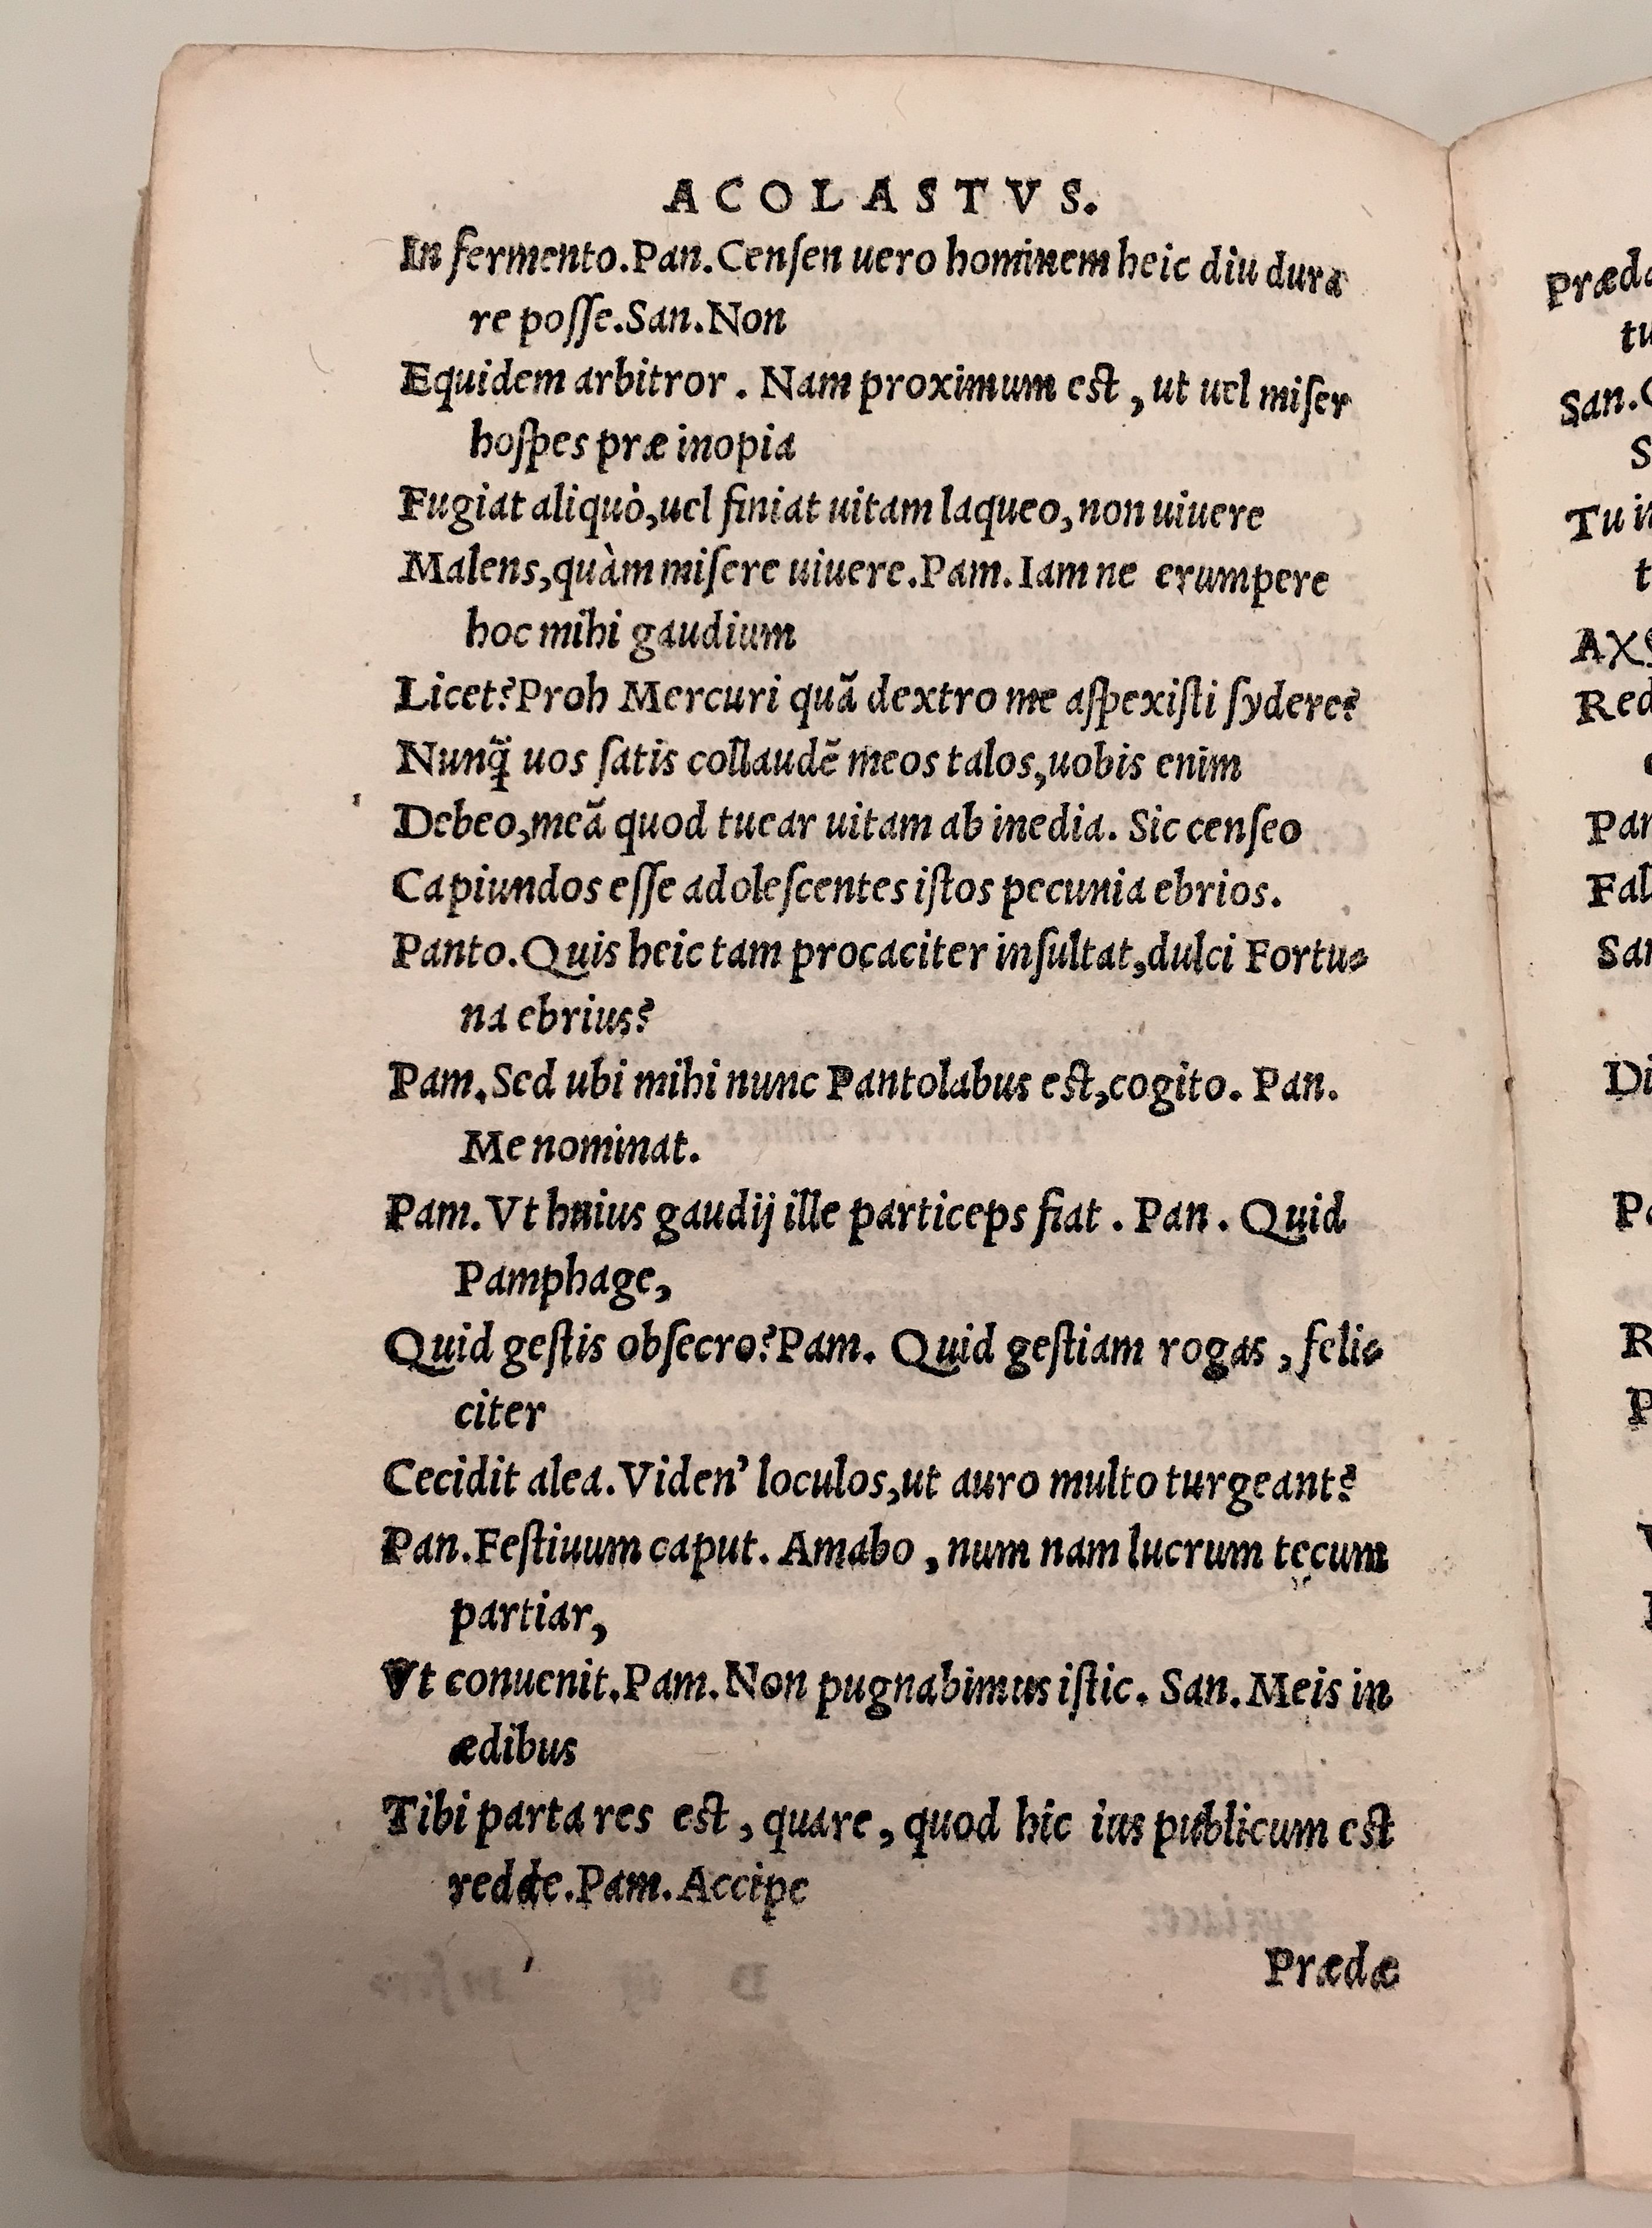 ACOLASTVS.
In fermento.Pan.Cenſen uero hominem heic diu dura
re poſſe.San.Non
Equidem arbitror. Nam proximum est, ut uel miſer
hoſpes præ inopia
Fugiat aliquò,uel finiat uitam laqueo,non uiuere
Malens,quàm miſere uiuere.Pam.Iam ne erumpere
hoc mihi gaudium
Licet?Proh Mercuri quã dextro me aſpexiſti ſydere?
Nunq̃ uos ſatis collaudẽ meos talos,uobis enim
Debeo,meã quod tuear uitam ab inedia. Sic cenſeo
Capiundos eſſe adoleſcentes iſtos pecunia ebrios.
Panto.Quis heic tam procaciter inſultat,dulci Fortu-
na ebrius?
Pam.Sed ubi mihi nunc Pantolabus est,cogito. Pan.
Me nominat.
Pam.Vt huius gaudij ille particeps fiat. Pan. Quid
Pamphage,
Quid geſtis obſecro?Pam. Quid geſtiam rogas, feli-
citer
Cecidit alea.Viden' loculos,ut auro multo turgeant?
Pan.Feſtiuum caput. Amabo, num nam lucrum tecum
partiar,
Vt conuenit.Pam.Non pugnabimus iſtic. San.Meis in
ædibus
Tibi parta res est, quare, quod hic ius publicum est
redde.Pam.Accipe
Prædæ
Præda
tu
San.
S
Tu in
t
Red
Pan
Fal
San
Di
R
P